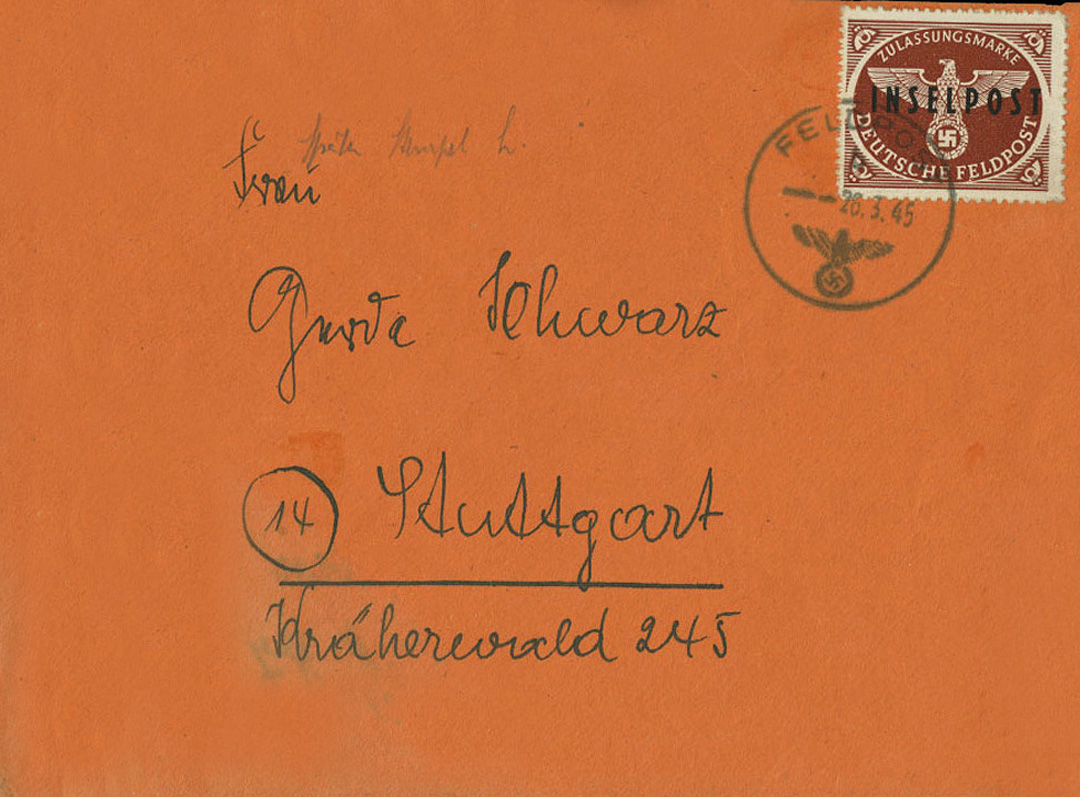 ZULASSUNGSMARKE
INSELPOST
DEUTSCHE FELDPOST
FELDPOST
b
28.3.45
Stempel
Frau
Gerda Schwarz
14 Stuttgart
Kräherwald 245